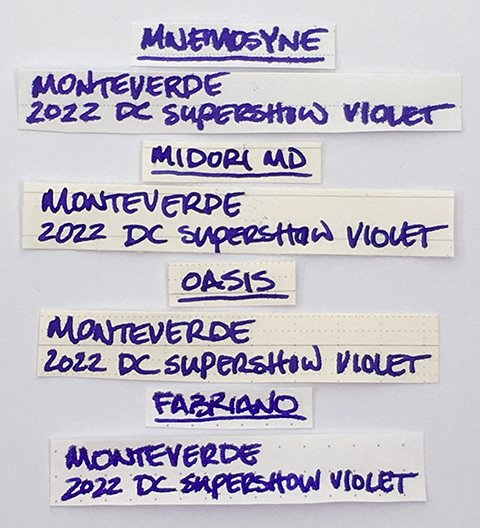 MNEMOSYNE
MONTEVERDE
2022 DC SUPERSHOW VIOLET
MIDORI MD
MONTEVERDE
2022 DC SUPERSHOW VIOLET
OASIS
MONTEVERDE
2022 DC SUPERSHOW VIOLET
FABRIANO
MONTEVERDE
2022 DC SUPERSHOW VIOLET